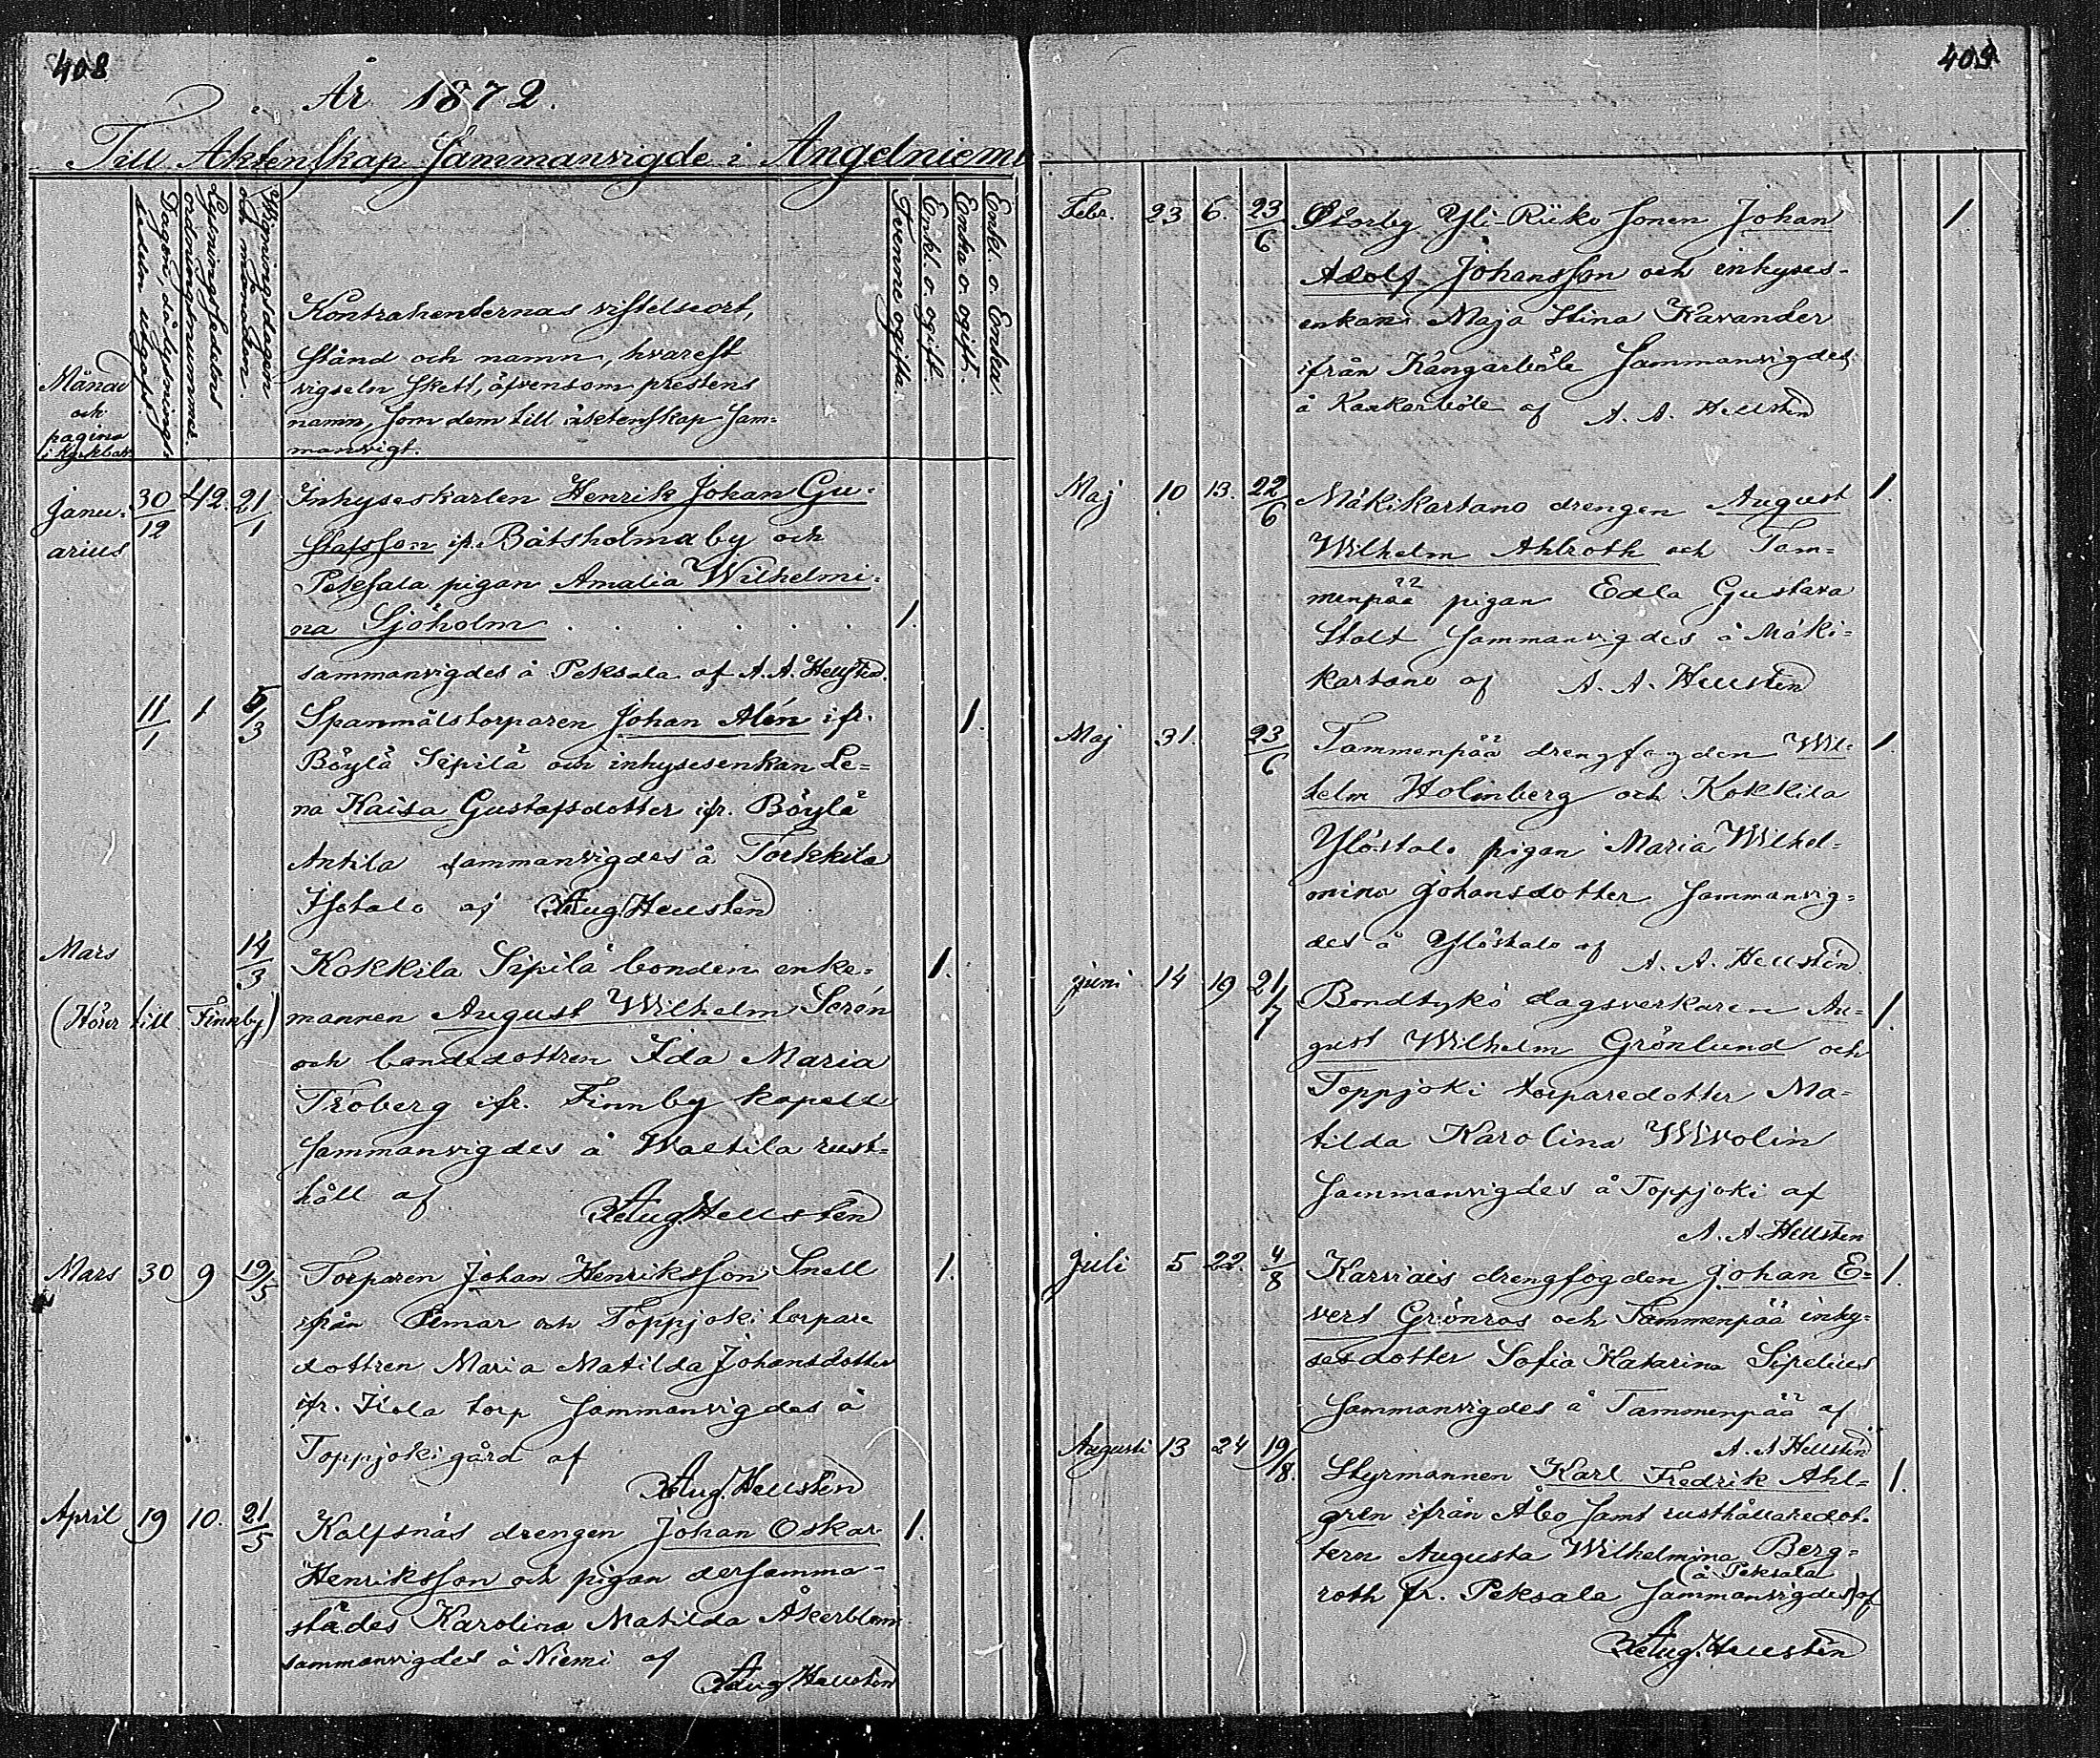 408
År 1872.
Till Äktenskap Sammanvigde i Angelniemi
Månad
och
pagina
i Kyrkbok.
Dagen, då lysnings
sedeln utgafs.
Lysningssedelns
ordningsnummer.
Vigningsdagen
och månaden.
Kontrahenternas vistelseort,
stånd och namn, hvarest
vigseln skett, äfvensom prestens
namn, som dem till äktenskap sam=
manvigt.
Tvenne ogifta.
Enkl. o. ogift.
Enka o. ogift.
Enkl. o. Enka.
Janu. 30/12 42. 21/1 Inhyseskarlen Henrik Johan Gu=
arius stafsson ifr. Båtsholma by och
Peksala pigan Amalia Wilhelmi=
na Sjöholm . . . . . . . 1.
sammanvigdes å Peksala af A. A. Hellsten
11/1 1 5/3 Spanmålstorparen Johan Alén ifr. 1.
Böylä Sipilä och inhysesenkan Le=
na Kaisa Gustafsdotter ifr. Böylä
Antila sammanvigdes å Torkkila
Isotalo af Aug. Hellsten
Mars 14/3 Kokkila Sipilä bonden enke= 1.
(Hörer till Finnby) mannen August Wilhelm Serén
och bondedottren Ida Maria
Fröberg ifr. Finnby kapell
sammanvigdes å Waltila rust=
håll af Aug. Hellsten
Mars 30 9 19/5 Torparen Johan Henriksson Snell 1.
ifrån Pemar och Toppjoki torpare
dottren Maria Matilda Johansdotter
ifr. Isola torp sammanvigdes å
Toppjoki gård af
Aug. Hellsten
April 19 10. 21/5 Kalfsnäs drengen Johan Oskar 1.
Henriksson och pigan dersamma=
städes Karolina Matilda Åkerblom
sammanvigdes å Niemi af
Aug Hellsten
409
Febr. 23 6. 23/6 Storby Yli-Riiko sonen Johan 1
Adolf Johansson och inhyses-
enkan Maja Stina Kavander
ifrån Kångarböle sammanvigdes
å Kankarböle af A. A. Hellsten
Maj 10 13. 22/6 Mäkikartano drengen August 1.
Wilhelm Ahlroth och Tam=
menpää pigan Edla Gustava
Stolt sammanvigdes å Mäki=
kartano af A. A. Hellsten
Maj 31. 23/6 Tammenpää drengfogden Wil= 1.
helm Holmberg och Kokkila
Ylöstalo pigan Maria Wilhel=
mina Johansdotter sammanvig=
des å Ylöstalo af A. A. Hellsten
Juni 14 19 21/7 Bondtykö dagsverkaren Au= 1.
gust Wilhelm Grönlund och
Toppjoki torparedotter Ma=
tilda Karolina Wivolin
sammanvigdes å Toppjoki af
A. A Hellsten
Juli 5 22. 4/8 Karviais drengfogden Johan E= 1.
vert Grönros och Tammenpää inhy=
sesdotter Sofia Katarina Sipelius
sammanvigdes å Tammenpää af
A. A Hellsten
Augusti 13 24 19/8. Styrmannen Karl Fredrik Ahl= 1.
gren ifrån Åbo samt rusthållaredot=
tern Augusta Wilhelmina Berg=
(å Peksala
roth fr. Peksala sammanvigdes) af
Aug. Hellsten